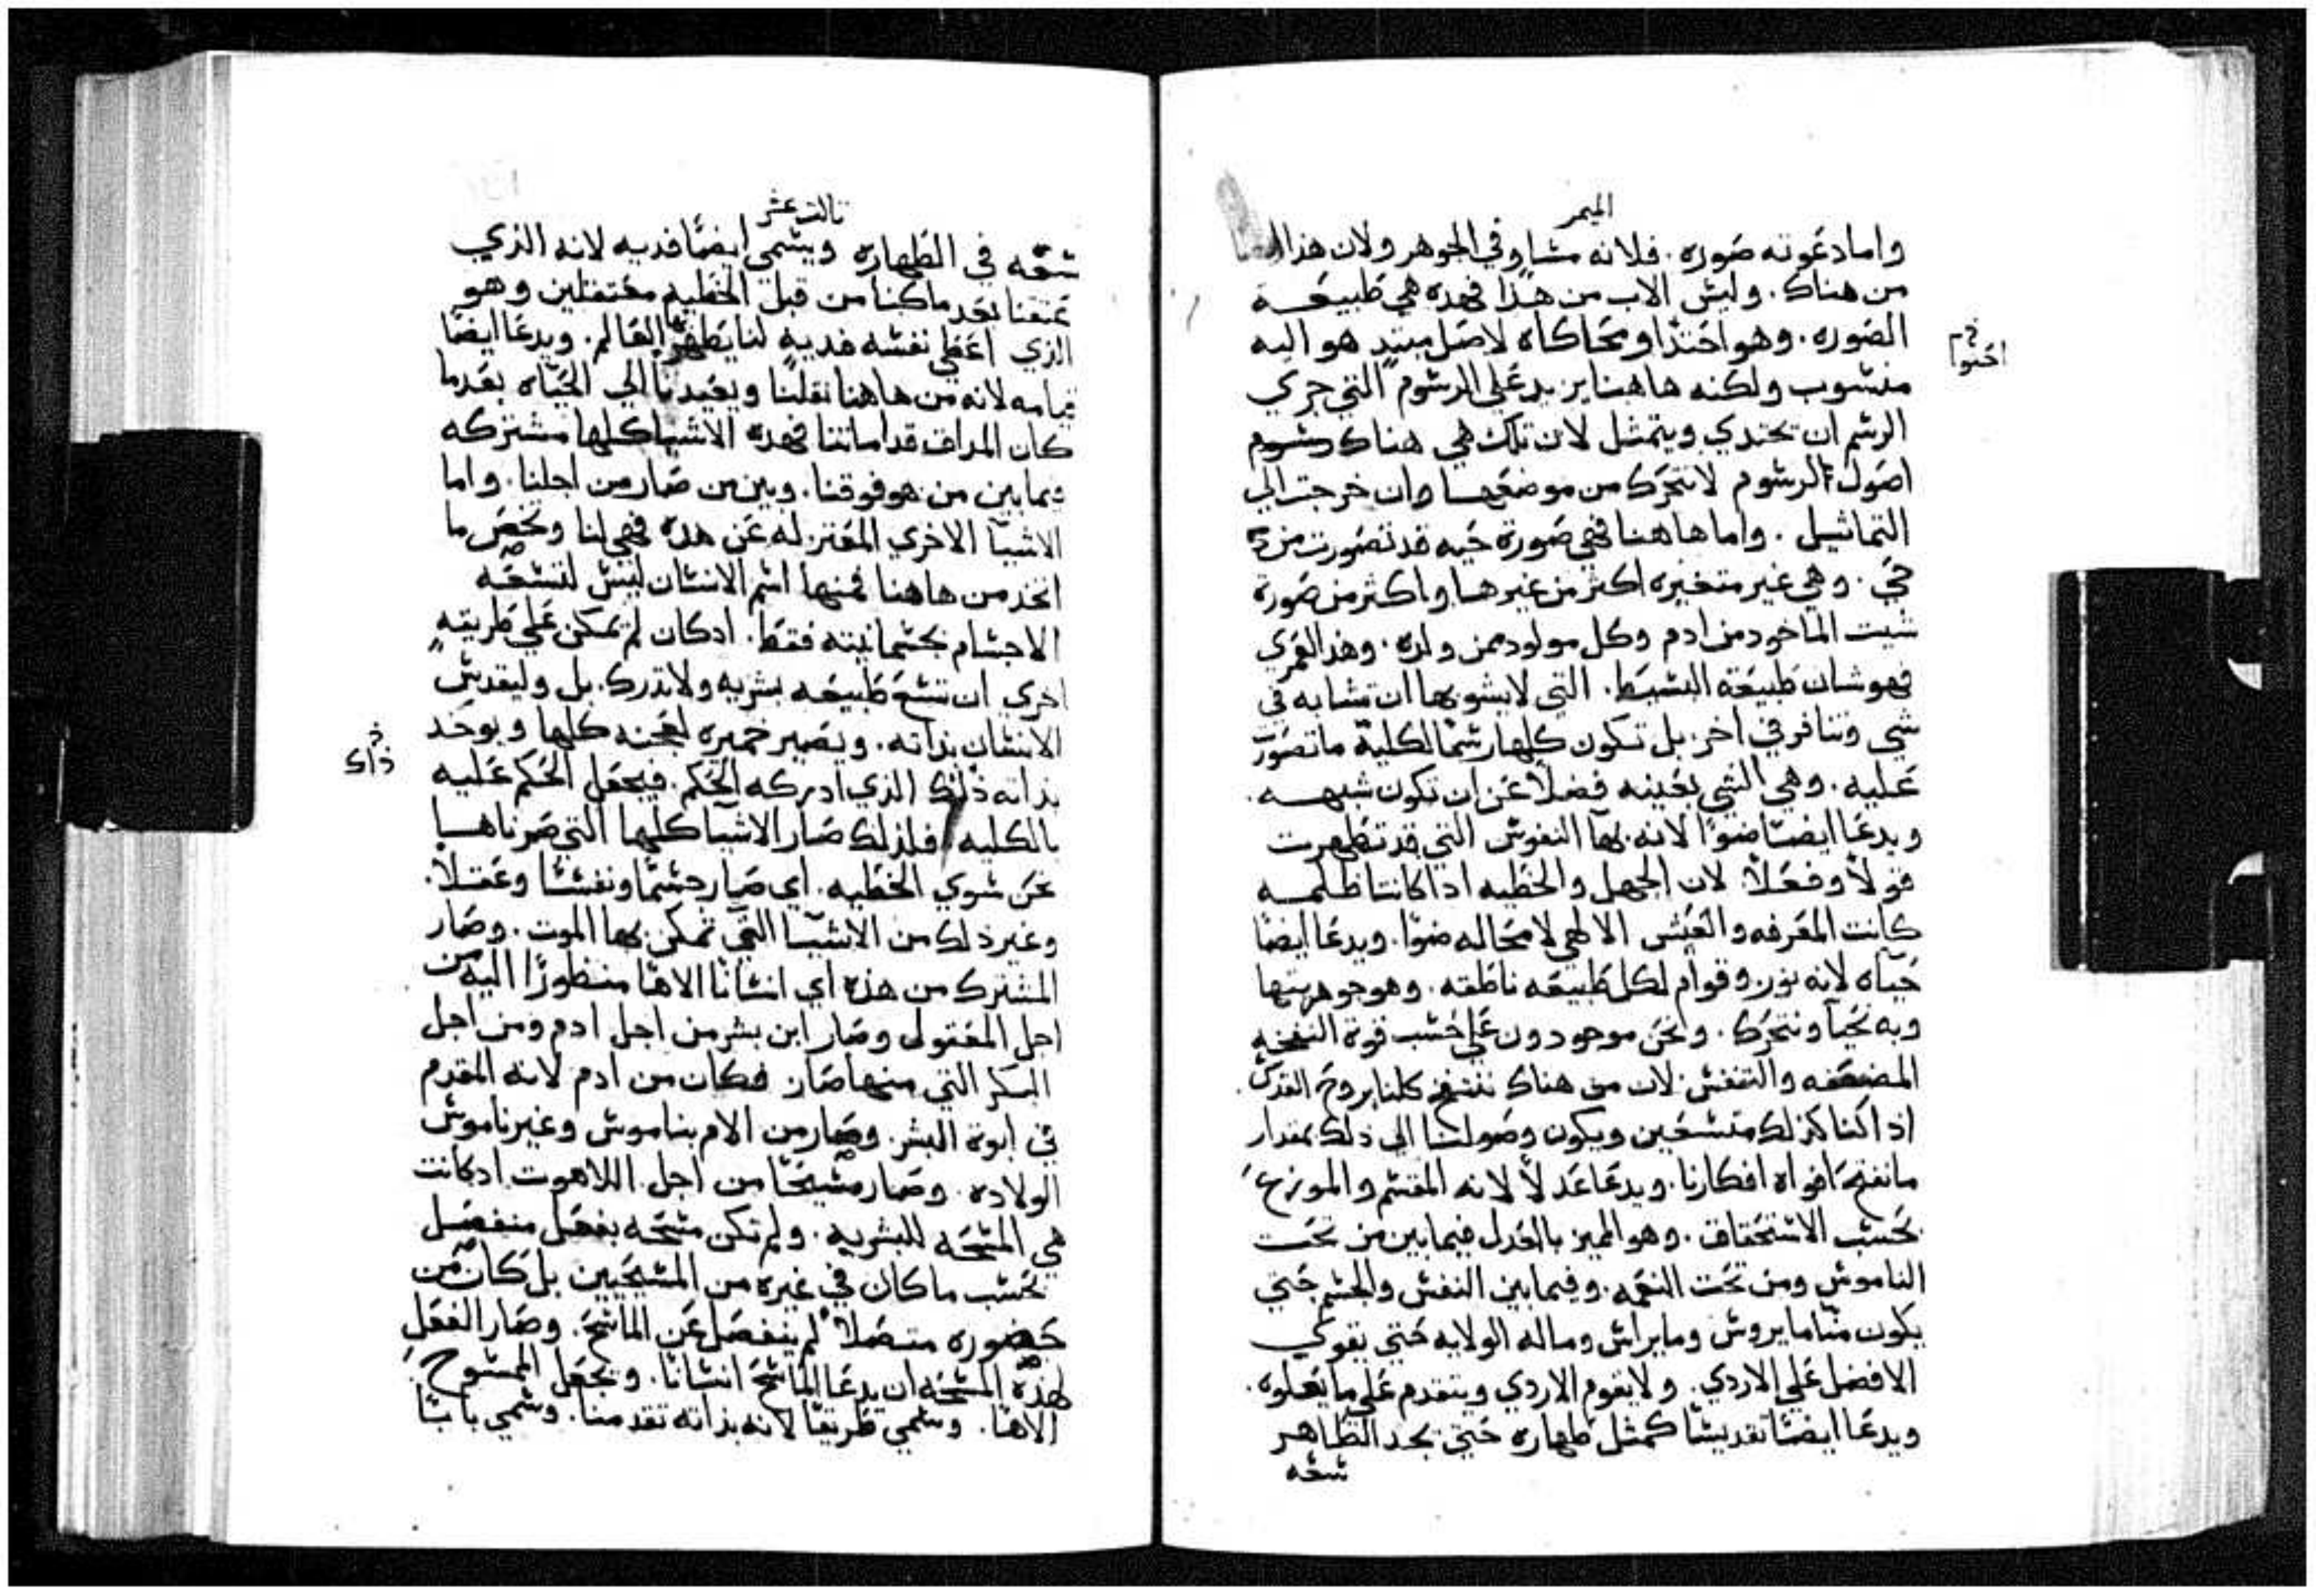 الميمر
واما دعوته صوره. فلانه مشاوفي الجوهر ولان هذا
من هناك. وليش الاب من هذا فهده هي طبيعـة
الصوره. وهو احتدا ومحاكاه لاصل مبتد هو اليه
احتوا
منشوب ولكنه هاهنا يزيد علي الرشوم التي جري
الرشم ان تحتدي ويتمثل لان تلك هي هناك رشوم
اصول الرشوم لا تتحرك من موضعها وان خرجت الي
التماثيل. واما هاهنا فهي صورة حيه قد تصورت من
حي. وهي غير متغيره اكثر من غيرها واكثر من صورة
شيت الماخود من ادم وكل مولود ممن ولده. وهذا لعمري
فهو شان طبيعة البشيط. التي لا يشوبها ان تشابه في
شي وتنافر في اخر. بل تكون كلها رشما لكلية ما تصورت
عليه. وهي الشي بعينه فضلا عن ان تكون شبهـه.
ويدعا ايضا ضوا لانه بها النفوش التي قد تطهرت
قولا وفعلا لان الجهل والخطيه ادا كانتا ظلمـه
كانت المعرفه والعيش الالهي لا محاله ضوا. ويدعا ايضا
حياه لانه نور. وقوام لكل طبيعه ناطقه. وهو جوهريتها
وبه نحيا ونتحرك. ونحن موجودون علي حشب قوة النفخه
المضعفه والتنفش. لان من هناك ننتفخ كلنا بروح القدش.
اذا كنا كذلك متشعين ويكون وصولنا الي ذلك بمقدار
ما نفتح افواه افكارنا. ويدعا عدلا لانه المقشم والموزع
بحشب الاشتحقاق. وهو المميز بالعدل فيما بين من تحت
الناموش ومن تحت النعمه. وفيما بين النفش والجشم حتي
يكون منا ما يروش وما يراش وماله الولايه حتي يقوي
الافضل علي الاردي. ولا يقوم الاردي ويتقدم علي ما يعلوه.
ويدعا ايضا تقديشا كمثل طهاره حتي يحد الطاهر
شعه
تالت عشر
شعه في الطهاره ويشمي ايضا فديه لانه الذي
عتقنا بعد ما كنا من قبل الخطيه معتقلين وهو
الذي اعطي نفشه فديه لنا يطهر العالم. ويدعا ايضا
قيامه لانه من هاهنا نقلنا ويعيدنا الي الحياه بعد ما
كان المداف قد اماتنا فهده الاشيا كلها مشتركه
فيما بين من هو فوقنا. وبين من صار من اجلنا. واما
الاشيا الاخري المعتزله عن هده فهي لنا وتخص ما
اتخد من هاهنا فمنها اشم الانشان ليش لتشعه
الاجشام بجشمانيته فقط. ادكان لم يمكن علي طريقه
اخري ان تشع طبيعه بشريه ولا تدرك. بل وليقدش
الانشان بذاته. ويصير خميره لعجنه كلها ويوحد
ذاك
بذاته ذلك الذي ادركه الحكم. فيجعل الحكم عليه
بالكليه فلذلك صار الاشيا كلها التي صرناها
نحن شوي الخطيه. اي صار جشما ونفشا وعقلا.
وغير ذلك من الاشيا التي تمكن بها الموت. وصار
المشترك من هذه اي انشانا الاها منظورا اليه من
اجل المعقولي وصار ابن بشر من اجل ادم ومن اجل
البكر التي منها صار. فكان من ادم لانه المقدم
في ابوة البشر. وصار من الام بناموش وغير ناموش
الولاده. وصار مشيحا من اجل اللاهوت ادكانت
هي المشحه للبشريه. ولم تكن مشحه بفعل منفصل
بحشب ما كان في غيره من المشيحيين بل كان من
حضوره متصلا لم ينفصل عن الماشح. وصار الفعل
لهذه المشحه ان يدعا الماشح انشانا. ويجعل الممشوح
الاها. وشمي طريقا لانه بذاته تقدمنا. وشمي بابا